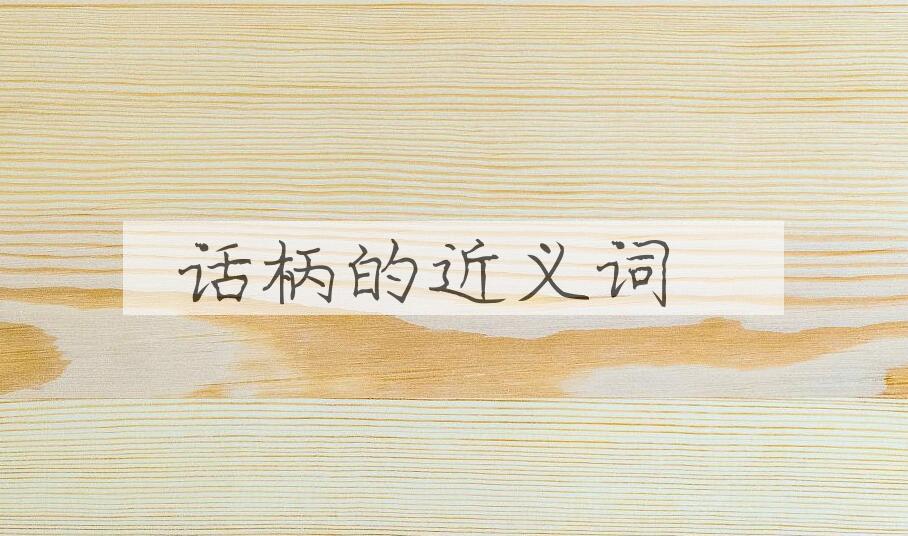 话柄的近义词